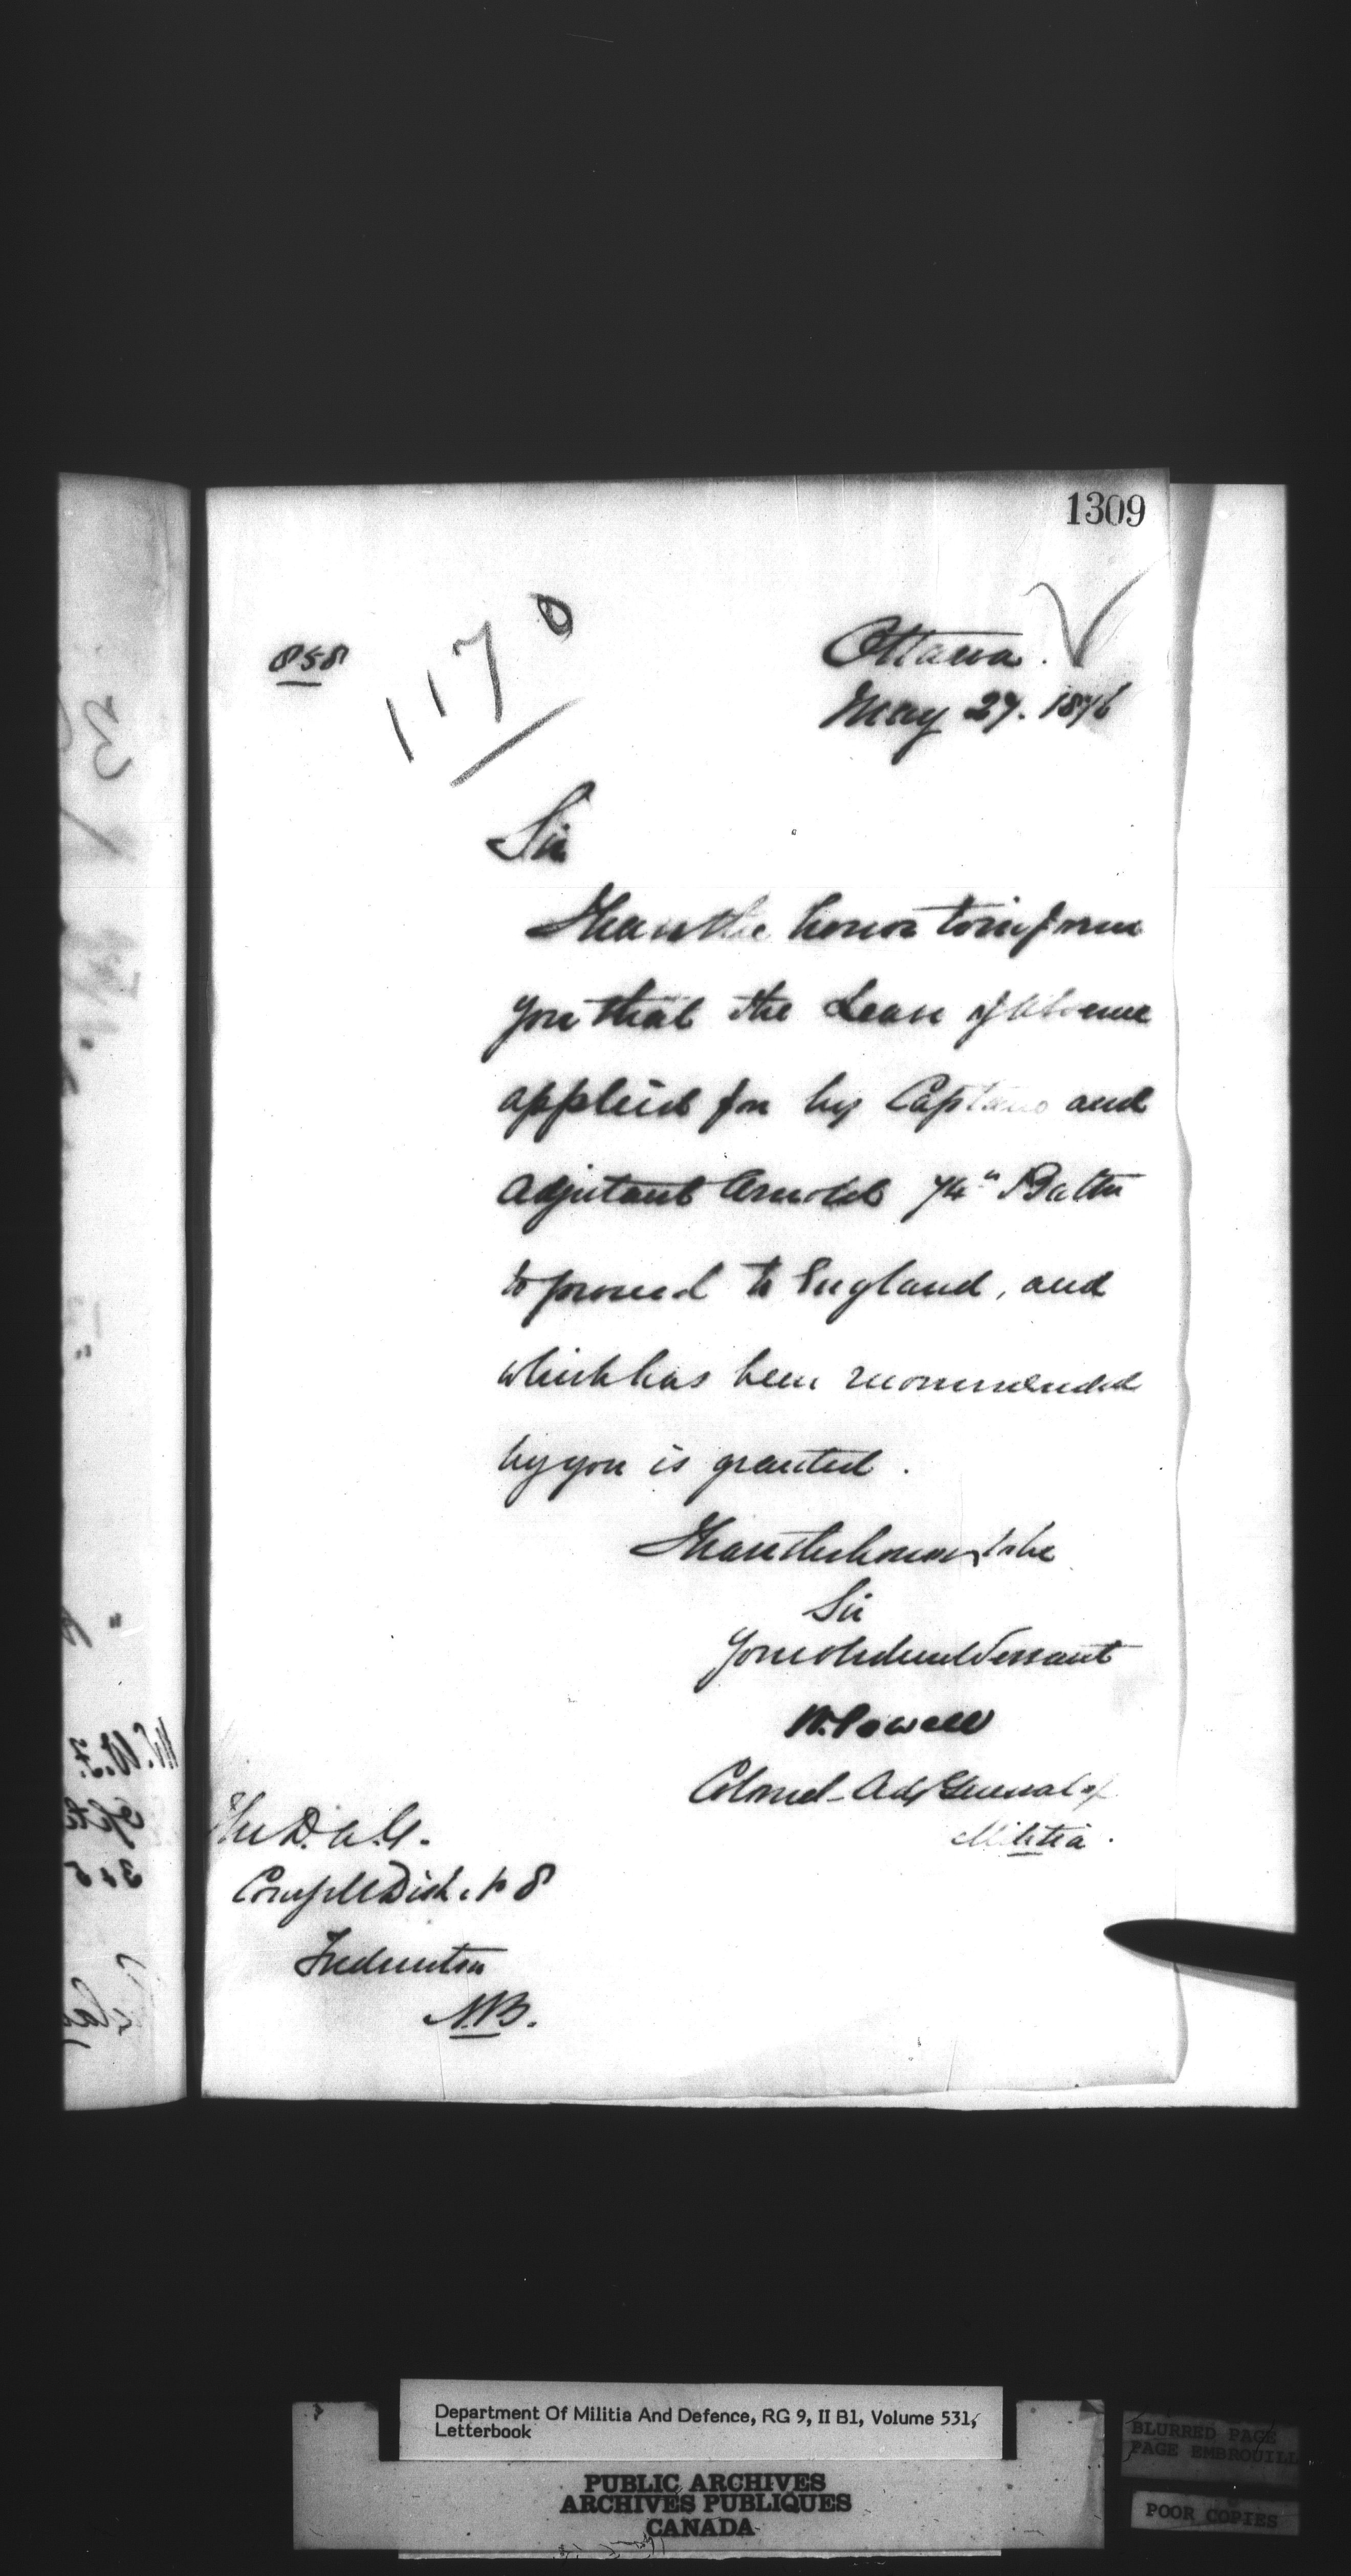 1309
858
1170
Ottawa.
May 27. 1876
Sir
I have the honor to inform
you that the Leave of Absence
applied for by Captain and
Adjutant Arnold 74th Battn
to proceed to England, and
which has been recommended
by you is granted.
I have the honor to be
Sir
Your obedient Servant
W. Powell
Colonel - Adj General of
Militia.
The D.A.G.
Comg M Dist. No 8
Fredericton
N.B.
Department Of Militia And Defence, RG 9, II B1, Volume 531,
Letterbook
PUBLIC ARCHIVES
ARCHIVES PUBLIQUES
CANADA
BLURRED PAGE
PAGE EMBROUILL
POOR COPIES